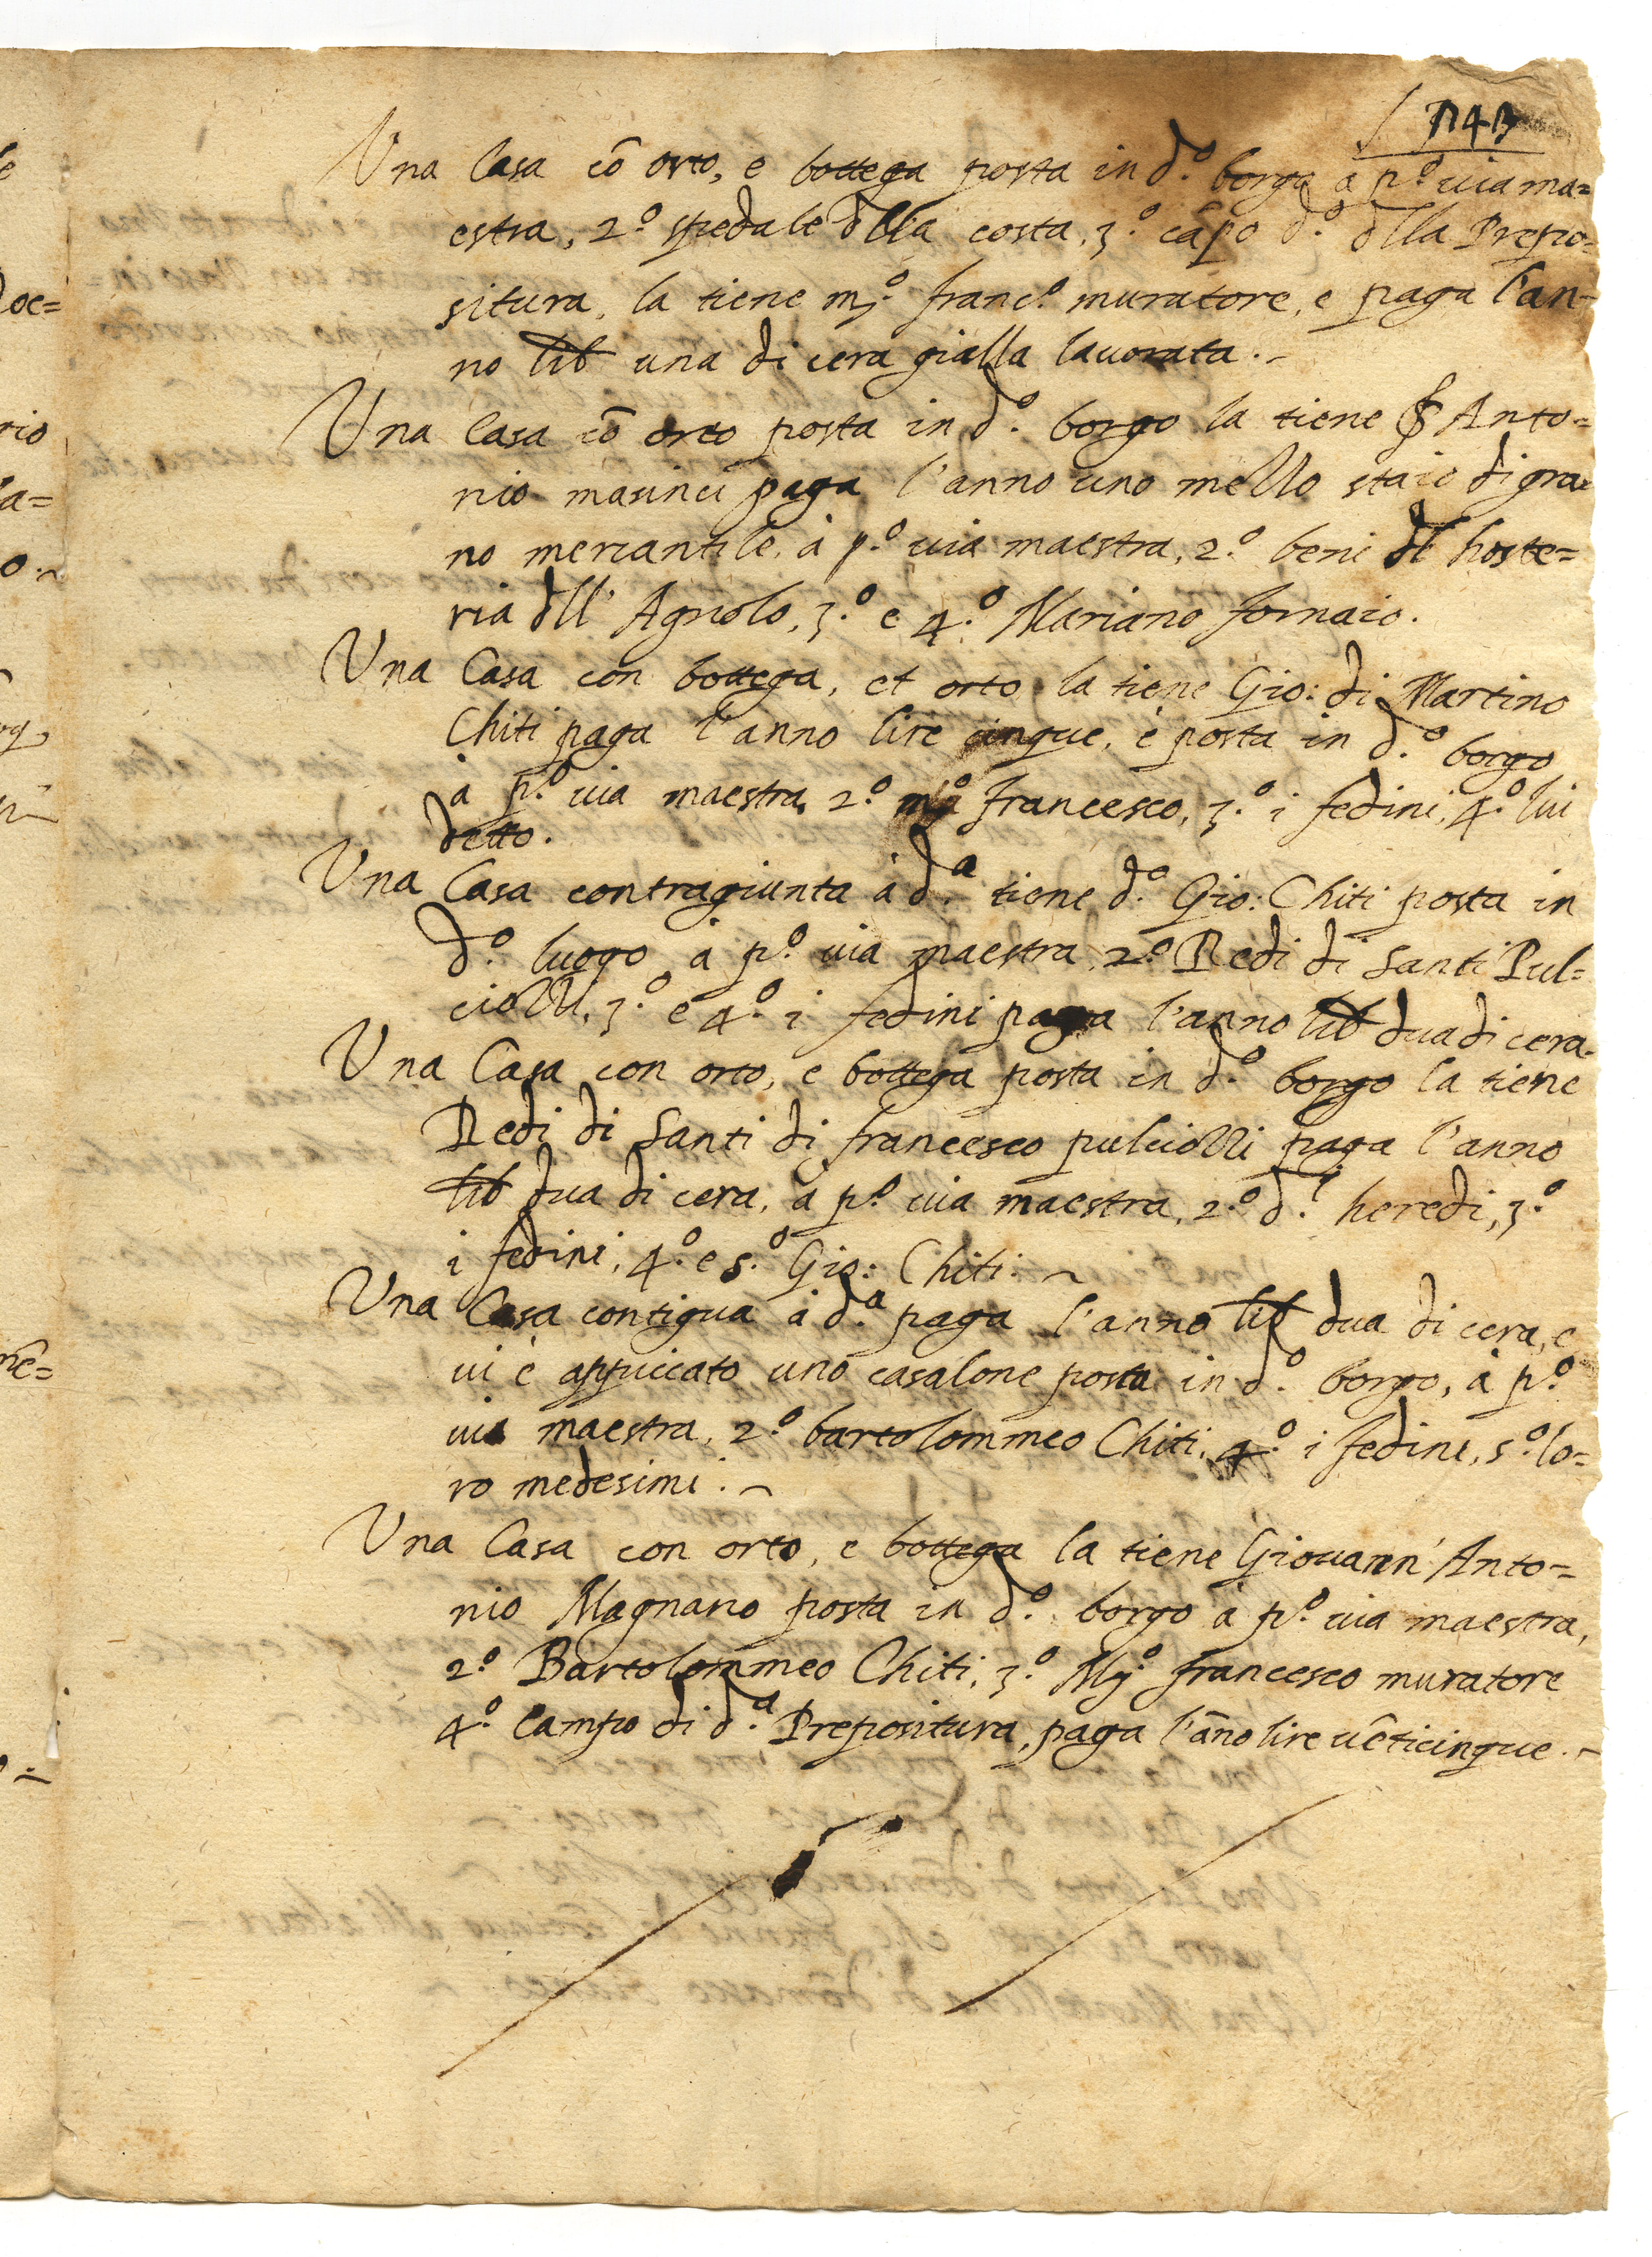 Una Casa cõ orto, e bottega posta in d.º borgo à p.º uia ma=
estra, 2.º spedale dlla costa, 3.º cãpo d.º dlla Prepo=
situra, la tiene m.º franc.º muratore, e paga l'an-
no lib una di cera gialla lauorata.
Una Casa cõ orto posta in d.º borgo la tiene Anto=
nio paga l'anno uno mezzo staio di gra=
no mercantile, à p.º uia maestra, 2.º beni dl hoste=
ria dll' Agnolo, 3.º e 4.º Mariano fornaio.
Una Casa con bottega, et orto la tiene Gio: di Martino
Chiti paga l'anno lire cinque, è posta in d.º borgo
à p.º uia maestra, 2.º m.º francesco, 3.º i fedini, 4.º lui
detto.
Una Casa contragiunta à d.ª tiene d.º Gio: Chiti posta in
d.º luogo à p.º uia maestra, 2.º Redi di Santi Pul=
ciolli, 3.º e 4.º i fedini paga l'anno lib dua di cera.
Una Casa con orto, e bottega posta in d.º borgo la tiene
Redi di Santi di francesco pulciolli paga l'anno
lib dua di cera, à p.º uia maestra, 2.º d.i heredi, 3.º
i fedini, 4.º e 5.º Gio: Chiti.
Una Casa contigua à d.ª paga l'anno lib dua di cera, e
ui è appiccato uno casalone posta in d.º borgo, à p.º
uia maestra, 2.º bartolommeo Chiti, 4.º i fedini, 5.º lo=
ro medesimi.
Una Casa con orto, e bottega la tiene Giouann' Anto=
nio Magnano posta in d.º borgo à p.º uia maestra,
2.º Bartolommeo Chiti, 3.º M.º francesco muratore
4.º Campo di d.ª Prepositura, paga l'ãno lire uẽticinque.